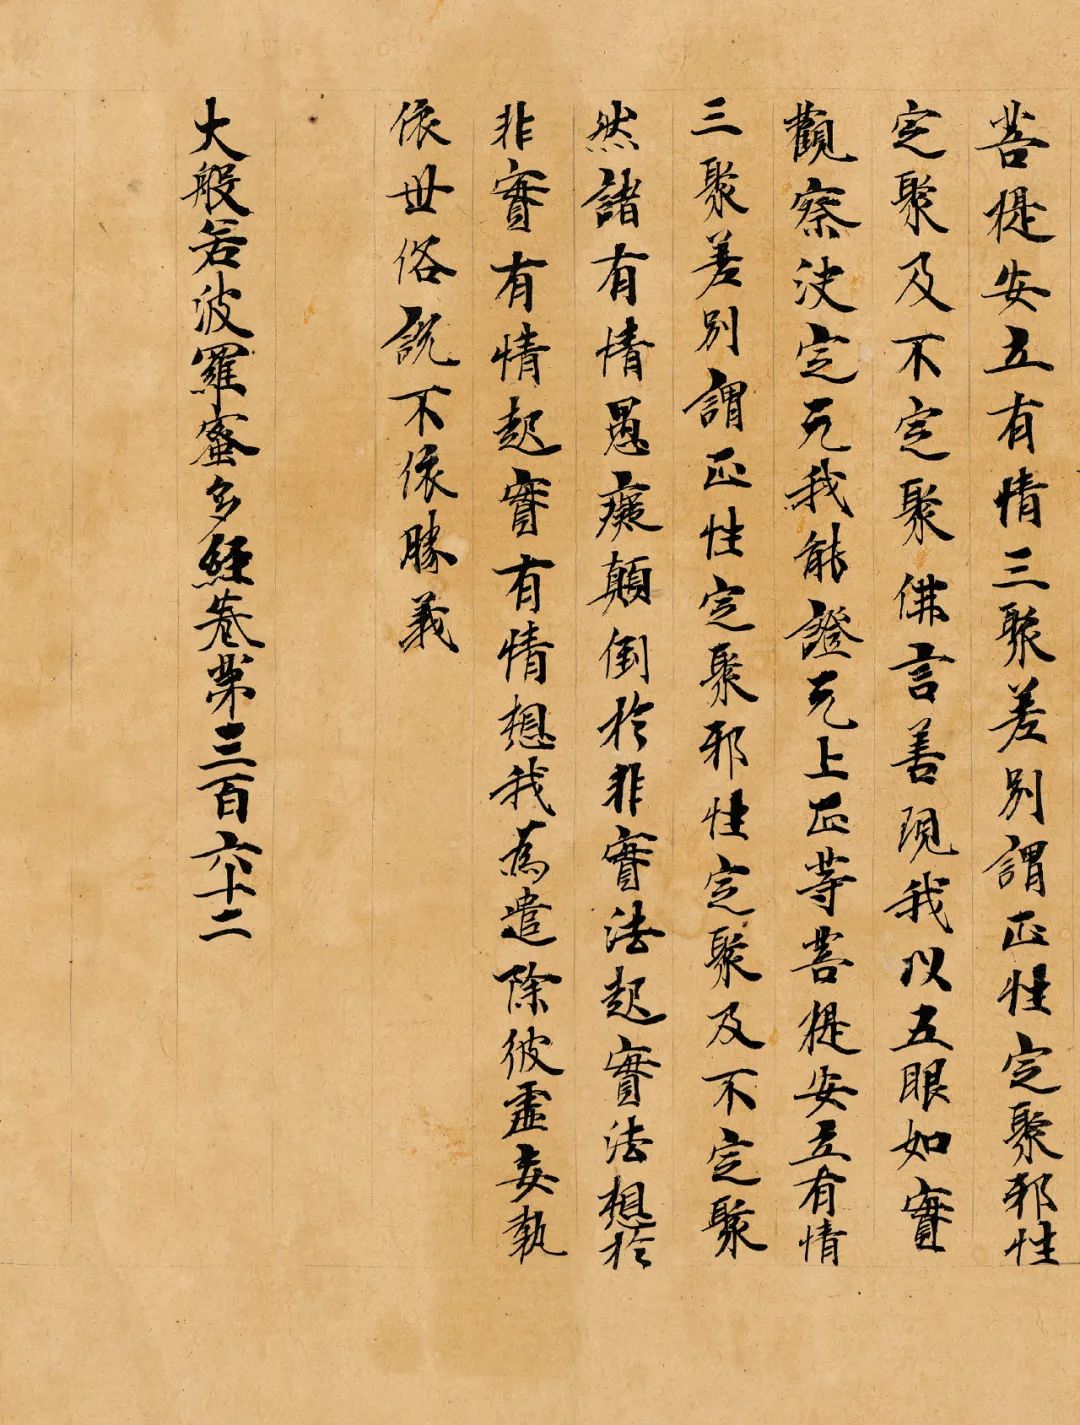 菩提安立有情三聚差別謂正性定聚邪性
定聚及不定聚佛言善現我以五眼如實
觀察決定无我能證无上正等菩提安立有情
三聚差別謂正性定聚邪性定聚及不定聚
然諸有情愚癡顛倒於非實法起實法想於
非實有情起實有情想我為遣除彼虛妄執
依世俗說不依勝義
大般若波羅蜜多經卷第三百六十二